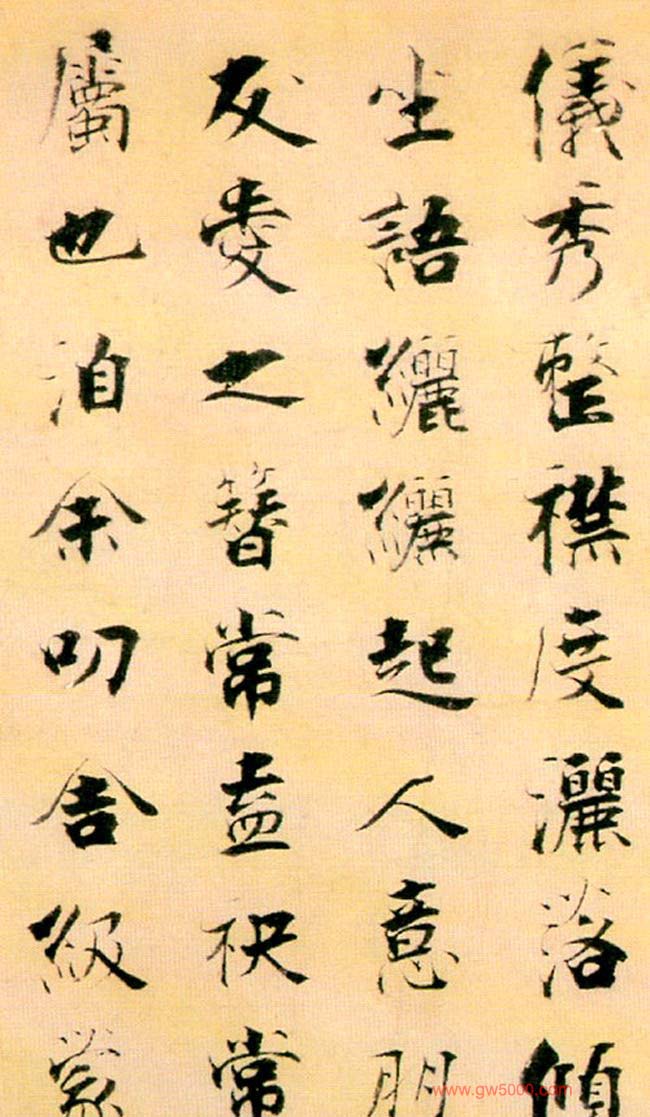 儀秀整襟度灑落傾
坐語纚纚起人意朋
友愛之簪常盍袂常
屬也洎余叨舍級蒙
www.gw5000.com